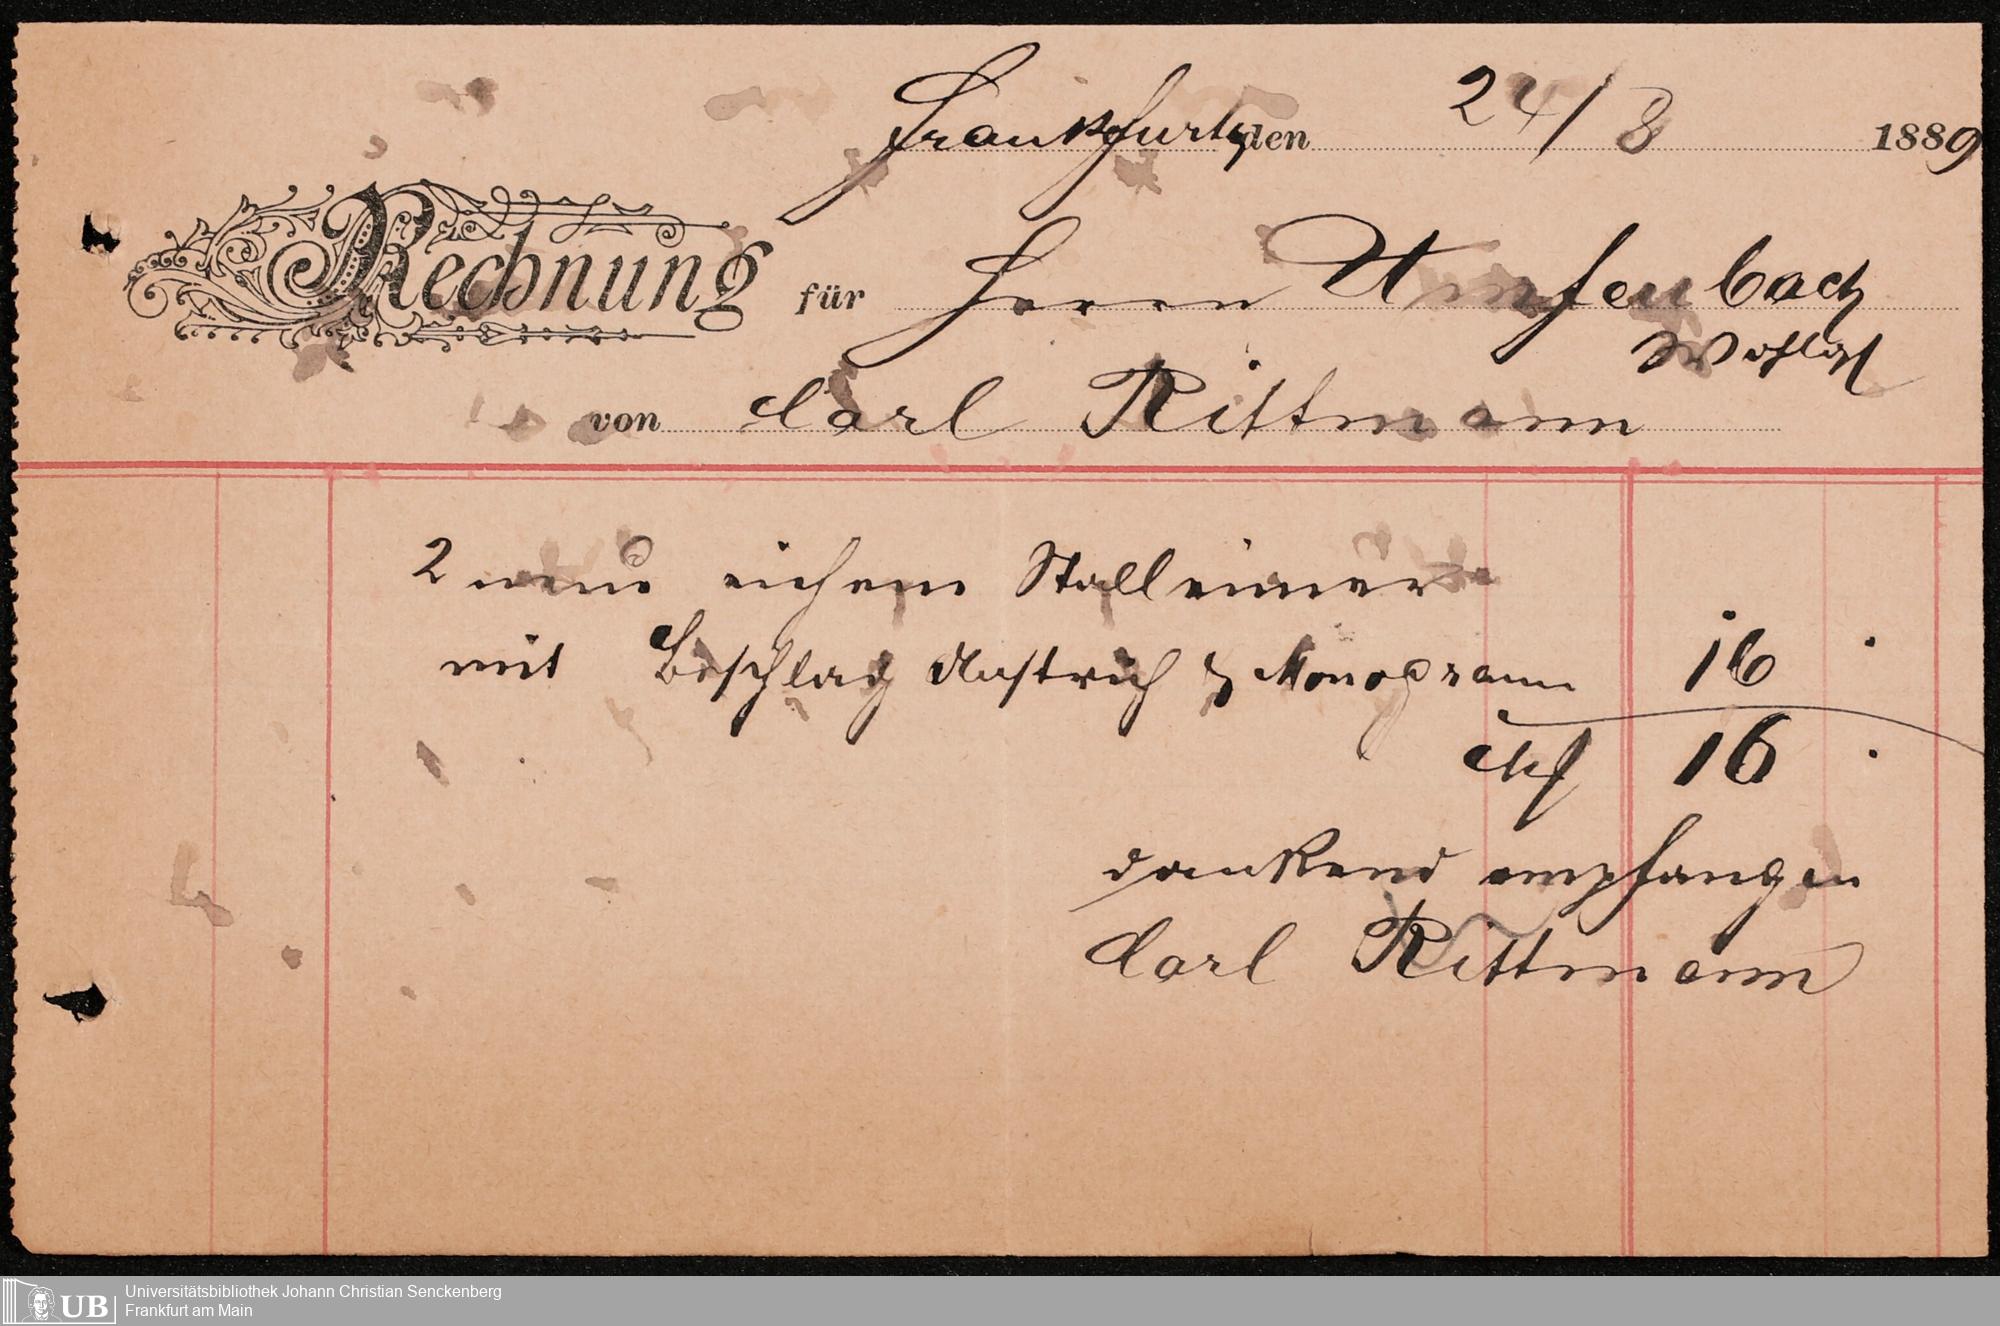 Frankfurt, den 24/8 1889
Rechnung für Herrn Umpfenbach
Wohlgb
von Carl Rittmann
2 neue eichene Stalleimer
mit Beschlag Anstrich & Monogramm 16 .
M 16 .
dankend empfangen
Carl Rittmann
UB
Universitätsbibliothek Johann Christian Senckenberg
Frankfurt am Main